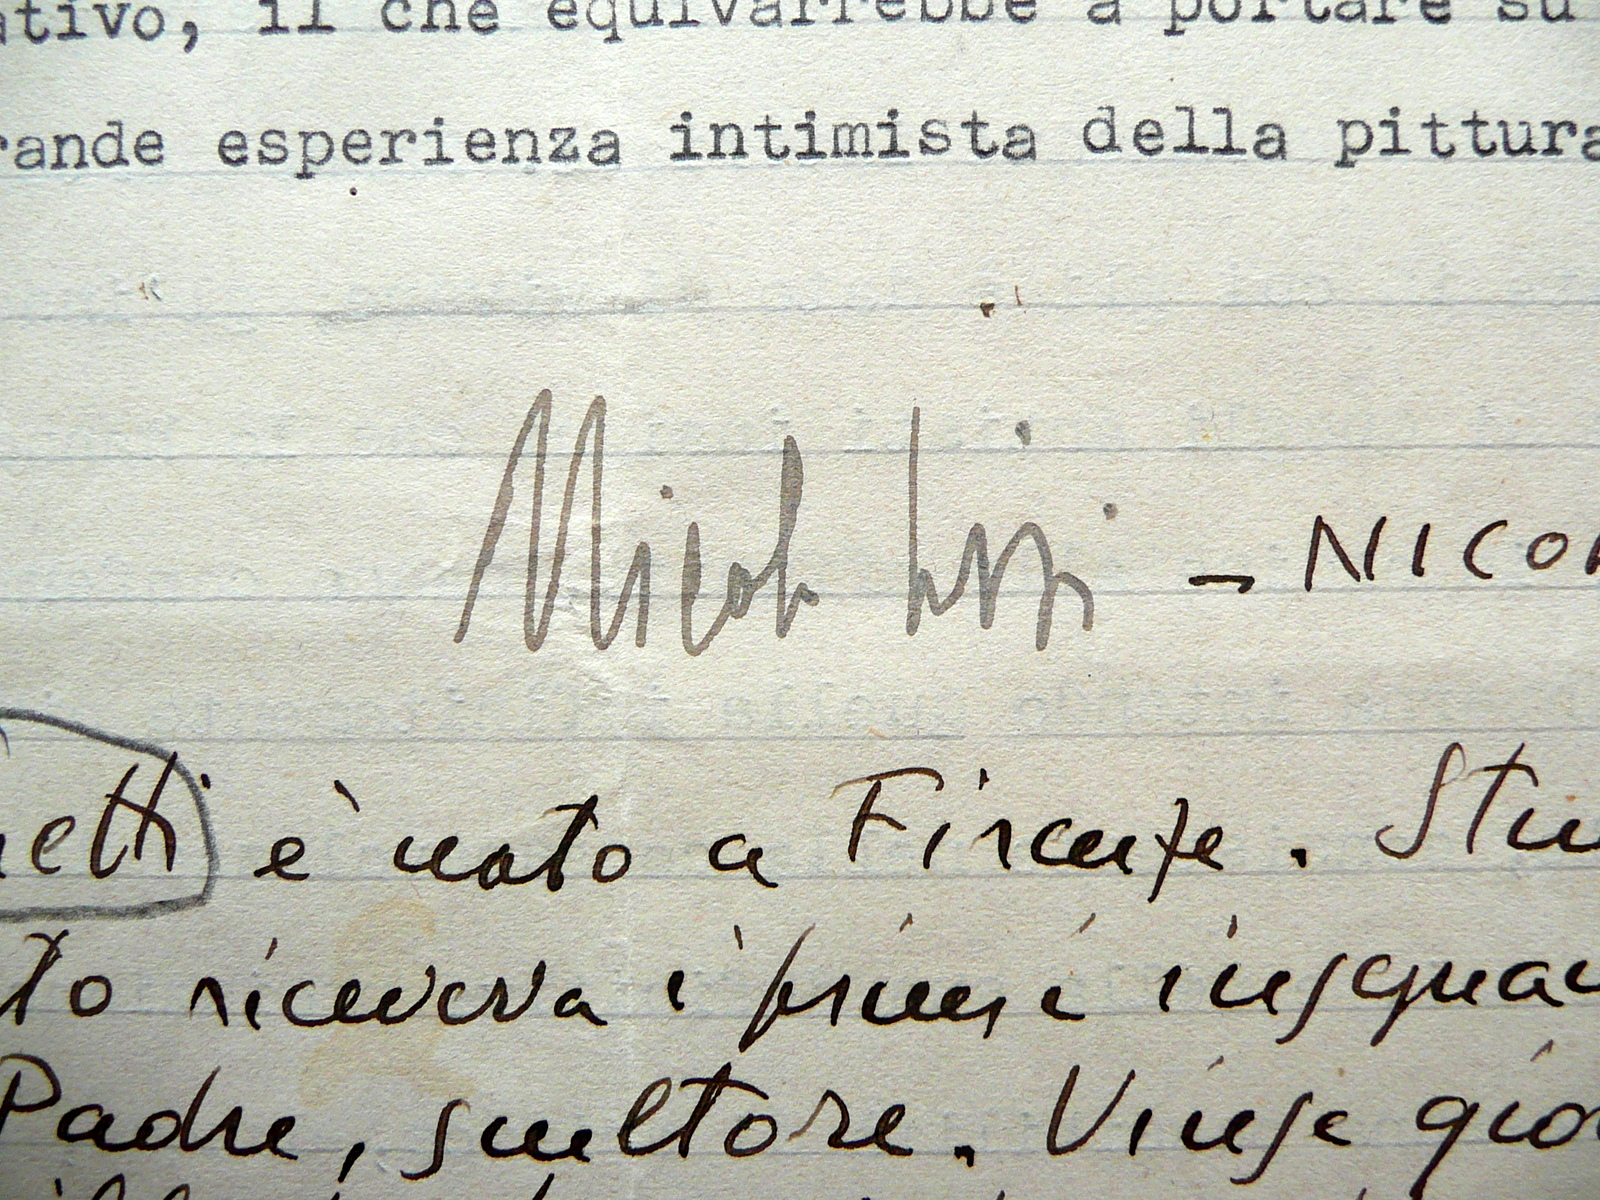 ativo, il che equivarrebbe a portare su
rande esperienza intimista della pittura
Nicola Lisi - NICO
netti è nato a Firenze. Stu
to riceveva i primi insegnan
Padre, scultore. Vinse gio